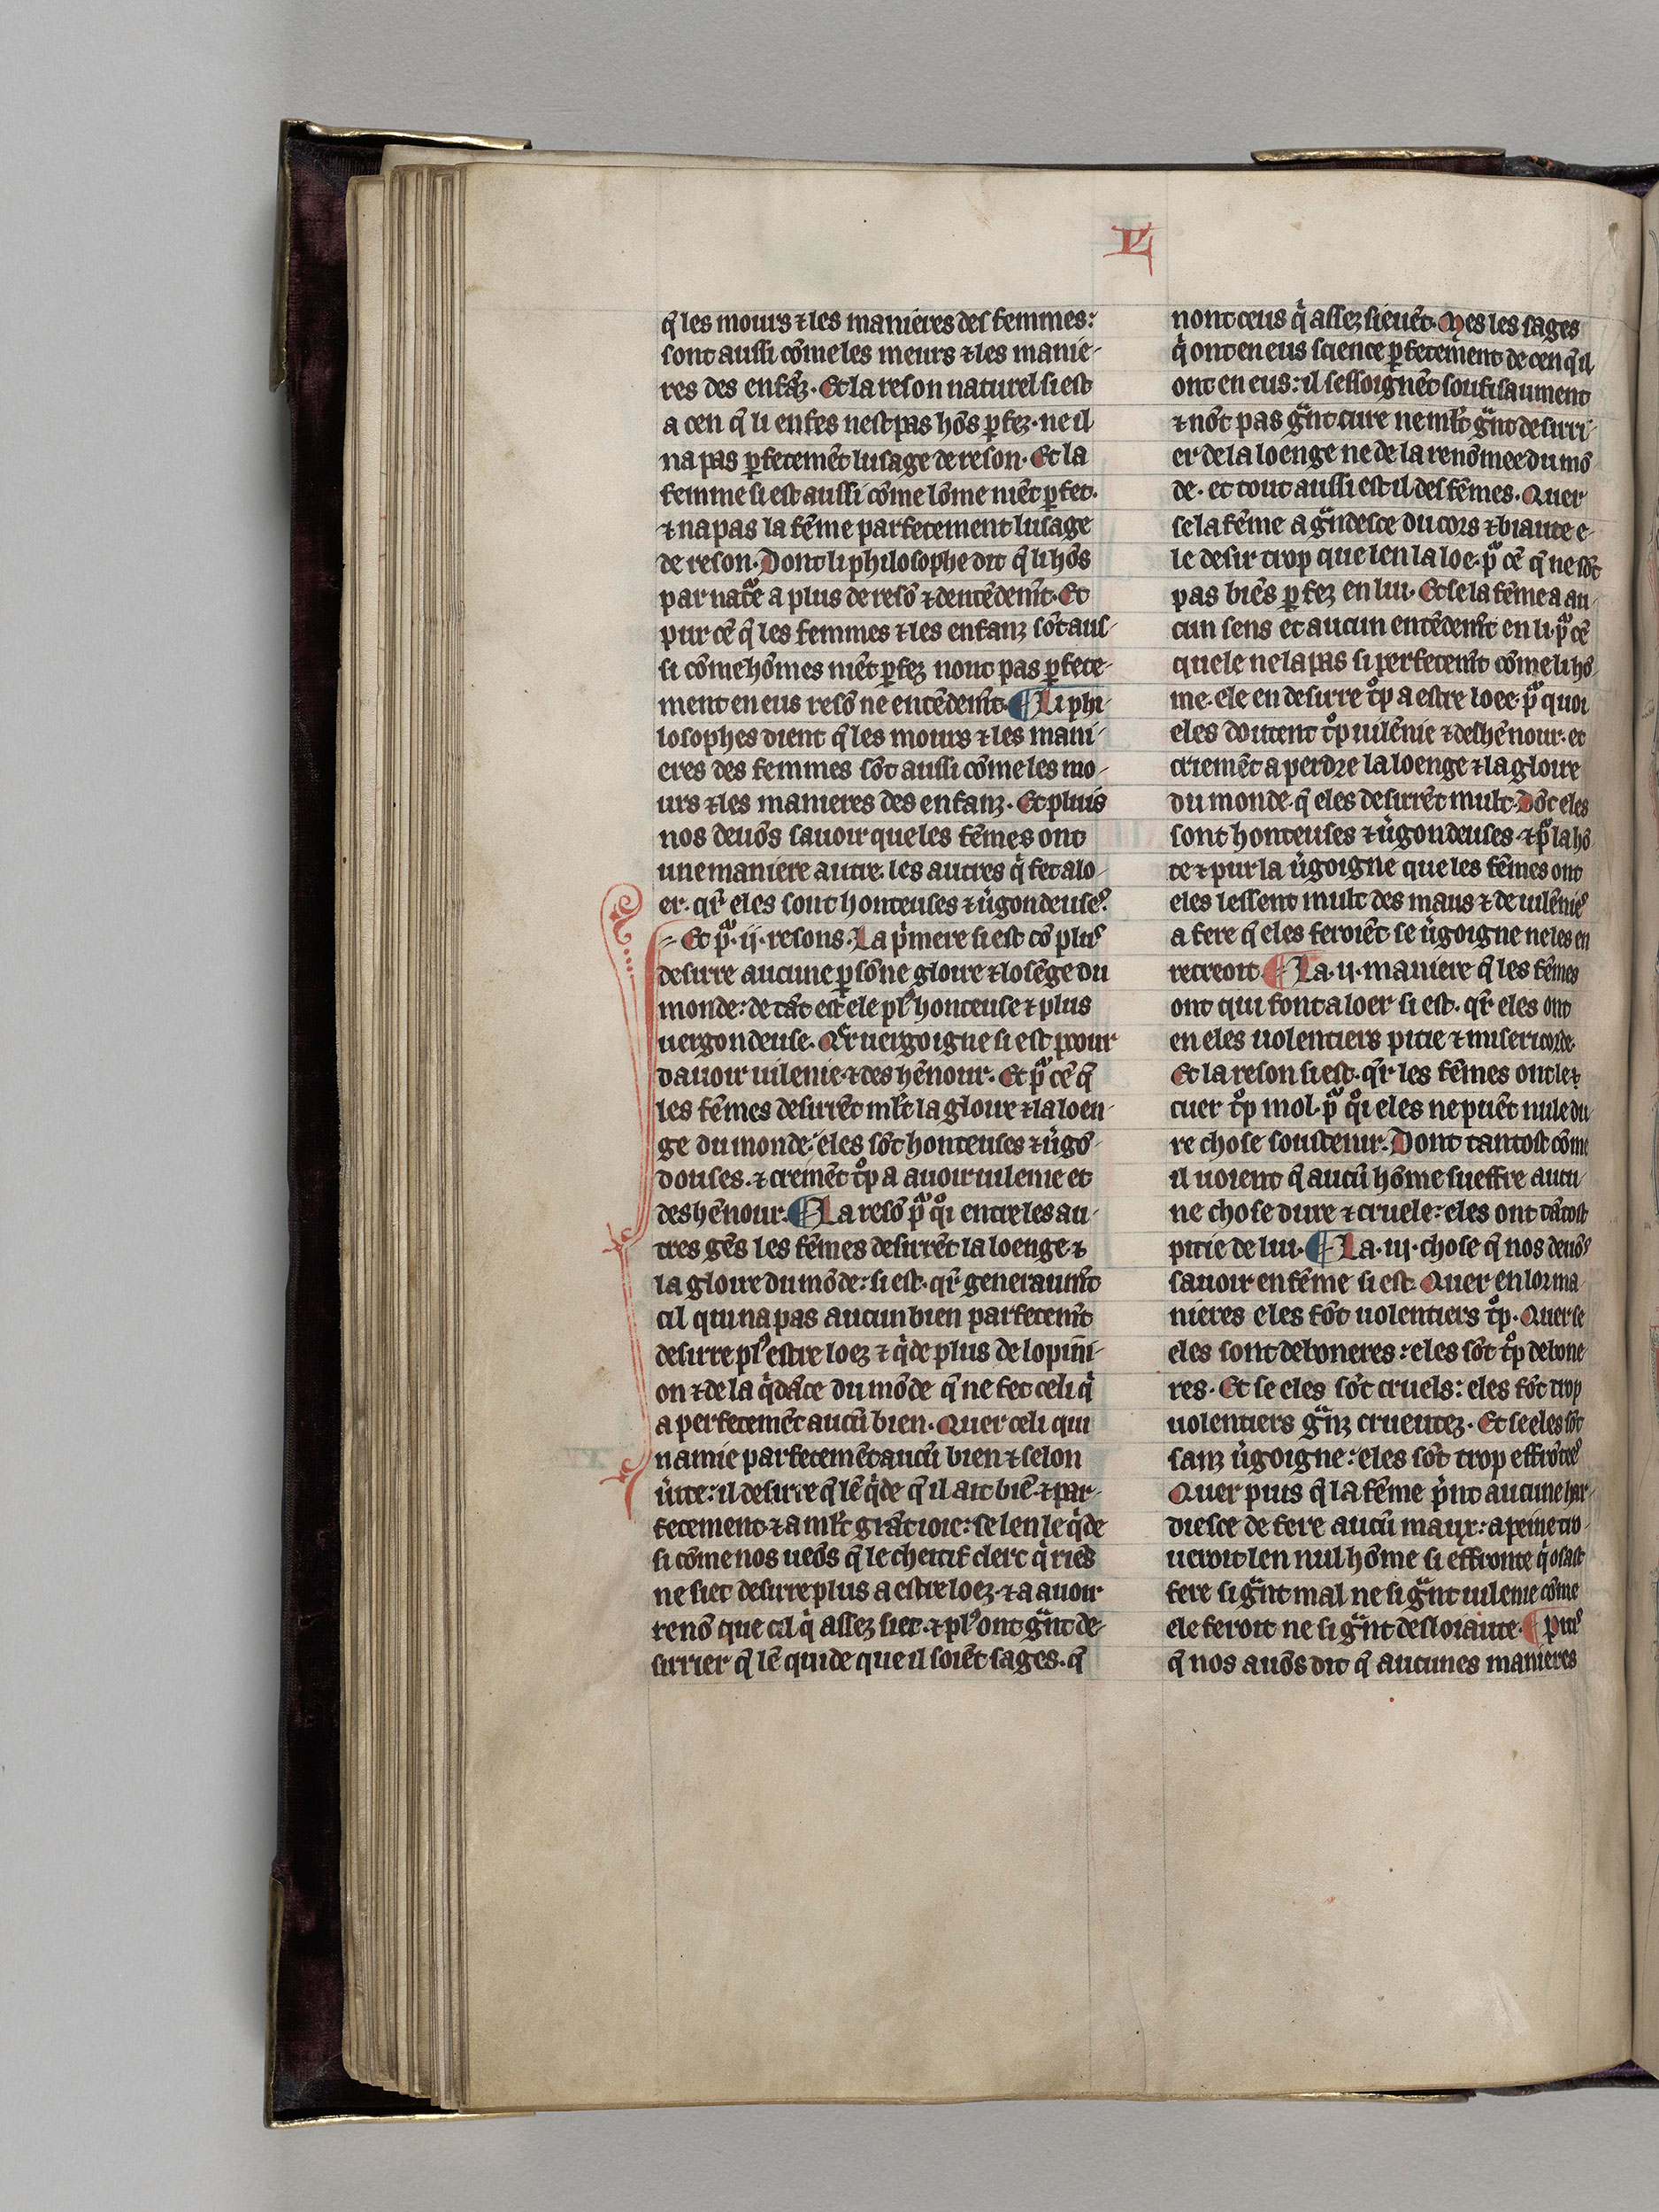 L
q̄ les mours ⁊ les manieres des femmes:
sont aussi cōme les meurs ⁊ les manie-
res des enfāz. Et la reson naturel si est
a cen q̄ li enfes nest pas hōs ꝑfez. ne il
na pas ꝑfetemēt lusage de reson. Et la
femme si est aussi cōme lōme niēt ꝑfet.
⁊ na pas la fēme parfetement lusage
de reson. Dont li philosophe dit q̄ li hōs
par natᵃe a plus de resō ⁊ dentēdemt̄. Et
pur cē q̄ les femmes ⁊ les enfanz sōt aus-
si cōme hōmes niēt ꝑfez nont pas ꝑfete-
ment en eus resō ne entēdemt̄. ¶ Li phi-
losophes dient q̄ les mours ⁊ les mani-
eres des femmes sōt aussi cōme les mo-
urs ⁊ les manieres des enfanz. Et pluis
nos deuōs sauoir que les fēmes ont
une maniere autre. les autres qⁱ fet a lo-
er. qr̄ eles sont honteuses ⁊ uͥgondeuseˢ.
Et pᵃ. ij. resons. La pͥmere si est cō plꝰ
desirre aucune ꝑsōne gloire ⁊ losēge du
monde: de tāt est ele plꝰ honteuse ⁊ plus
uergondeuse. Qr̄ uergoigne si est poour
dauoir uilenie ⁊ deshēnour. Et pᵃ cē q̄
les fēmes desirrēt ml̄t la gloire ⁊ la loen-
ge du monde: eles sōt honteuses ⁊ uͥgō-
douses. ⁊ criemēt tᵒp a auoir uilenie et
deshēnour. ¶ La resō pᵃ qᵒi entre les au-
tres gēs les fēmes desirrēt la loenge ⁊
la gloire du mōde: si est. qr̄ generaumt̄
cil qui na pas aucun bien parfetemt̄
desirre plꝰ estre loez ⁊ qⁱde plus de lopini-
on ⁊ de la qⁱdāce du mōde q̄ ne fet celi qⁱ
a perfetemēt aucū bien. Quer celi qui
na mie parfetemēt aucū bien ⁊ selon
uͥite: il desirre q̄ lē qⁱde q̄ il ait biē ⁊ par-
fetement ⁊ a ml̄t grāt ioie: se len le qⁱde
si cōme nos ueōs q̄ le cheitif clerc qⁱ riēs
ne siet desirre plus a estre loez. ⁊ a auoir
renō que cil qⁱ assez siet. ⁊ plꝰ ont gᵃnt de-
sirrier q̄ lē quide que il soiēt sages. q̄
nont ceus qⁱ assez sieuēt. Mes les sages
qⁱ ont en eus science ꝑfetement de cen q̄ il
ont en eus: il sessoignēt soufisaument
⁊ nōt pas gᵃnt cure ne ml̄t gᵃnt desirri-
er de la loenge ne de la renōmee du mō
de. et tout aussi est il des fēmes. Quer
se la fēme a gᵃndesce du cors ⁊ biaute e-
le desir trop que len la loe. pᵃ cē q̄ ne sōt
pas biēs ꝑfez en lui. Et se la fēme a au-
cun sens et aucun entēdemt̄ en li. pᵃ cē
quele ne la pas si perfetemt̄ cōme li hō-
me. ele en desirre tᵒp a estre loee. pᵃ quoi
eles doutent tᵒp uilēnie ⁊ deshēnour. et
criemēt a perdre la loenge ⁊ la gloire
du monde. q̄ eles desirrēt mult. Dōc eles
sont honteuses ⁊ uͥgondeuses. ⁊ pᵃ la hō
te ⁊ pur la uͥgoigne que les fēmes ont
eles lessent mult des maus ⁊ de uilēnieˢ
a fere q̄ eles feroiēt se uͥgoigne ne les en
retreoit ¶ La. ij. maniere q̄ les fēmes
ont qui font a loer si est. qr̄ eles ont
en eles uolentiers pitie ⁊ misericorde.
Et la reson si est. qr̄ les fēmes ont le
cuer tᵒp mol. pᵃ qᵒi eles ne puēt nule du-
re chose soustenir. Dont tantost cōme
il uoient q̄ aucū hōme sueffre aucu-
ne chose dure ⁊ cruele: eles ont tātost
pitie de lui. ¶ La. iij. chose q̄ nos deuōˢ
sauoir en fēme si est. Quer en lor ma-
nieres eles fōt uolentiers tᵒp. Quer se
eles sont deboneres: eles sōt tᵒp debone
res. Et se eles sōt cruels: eles fōt trop
uolentiers gᵃnz cruentez. Et se eles sōt
sanz uͥgoigne: eles sōt trop effrōteeˢ
Quer puis q̄ la fēme pͥnt aucune har-
diesce de fere aucū maux: a peine tro-
ueroit len nul hōme si effronte qⁱ osast
fere si gᵃnt mal ne si gᵃnt uilenie cōme
ele feroit ne si gᵃnt desloiaute. ¶ Puiˢ
q̄ nos auōs dit q̄ aucunes manieres